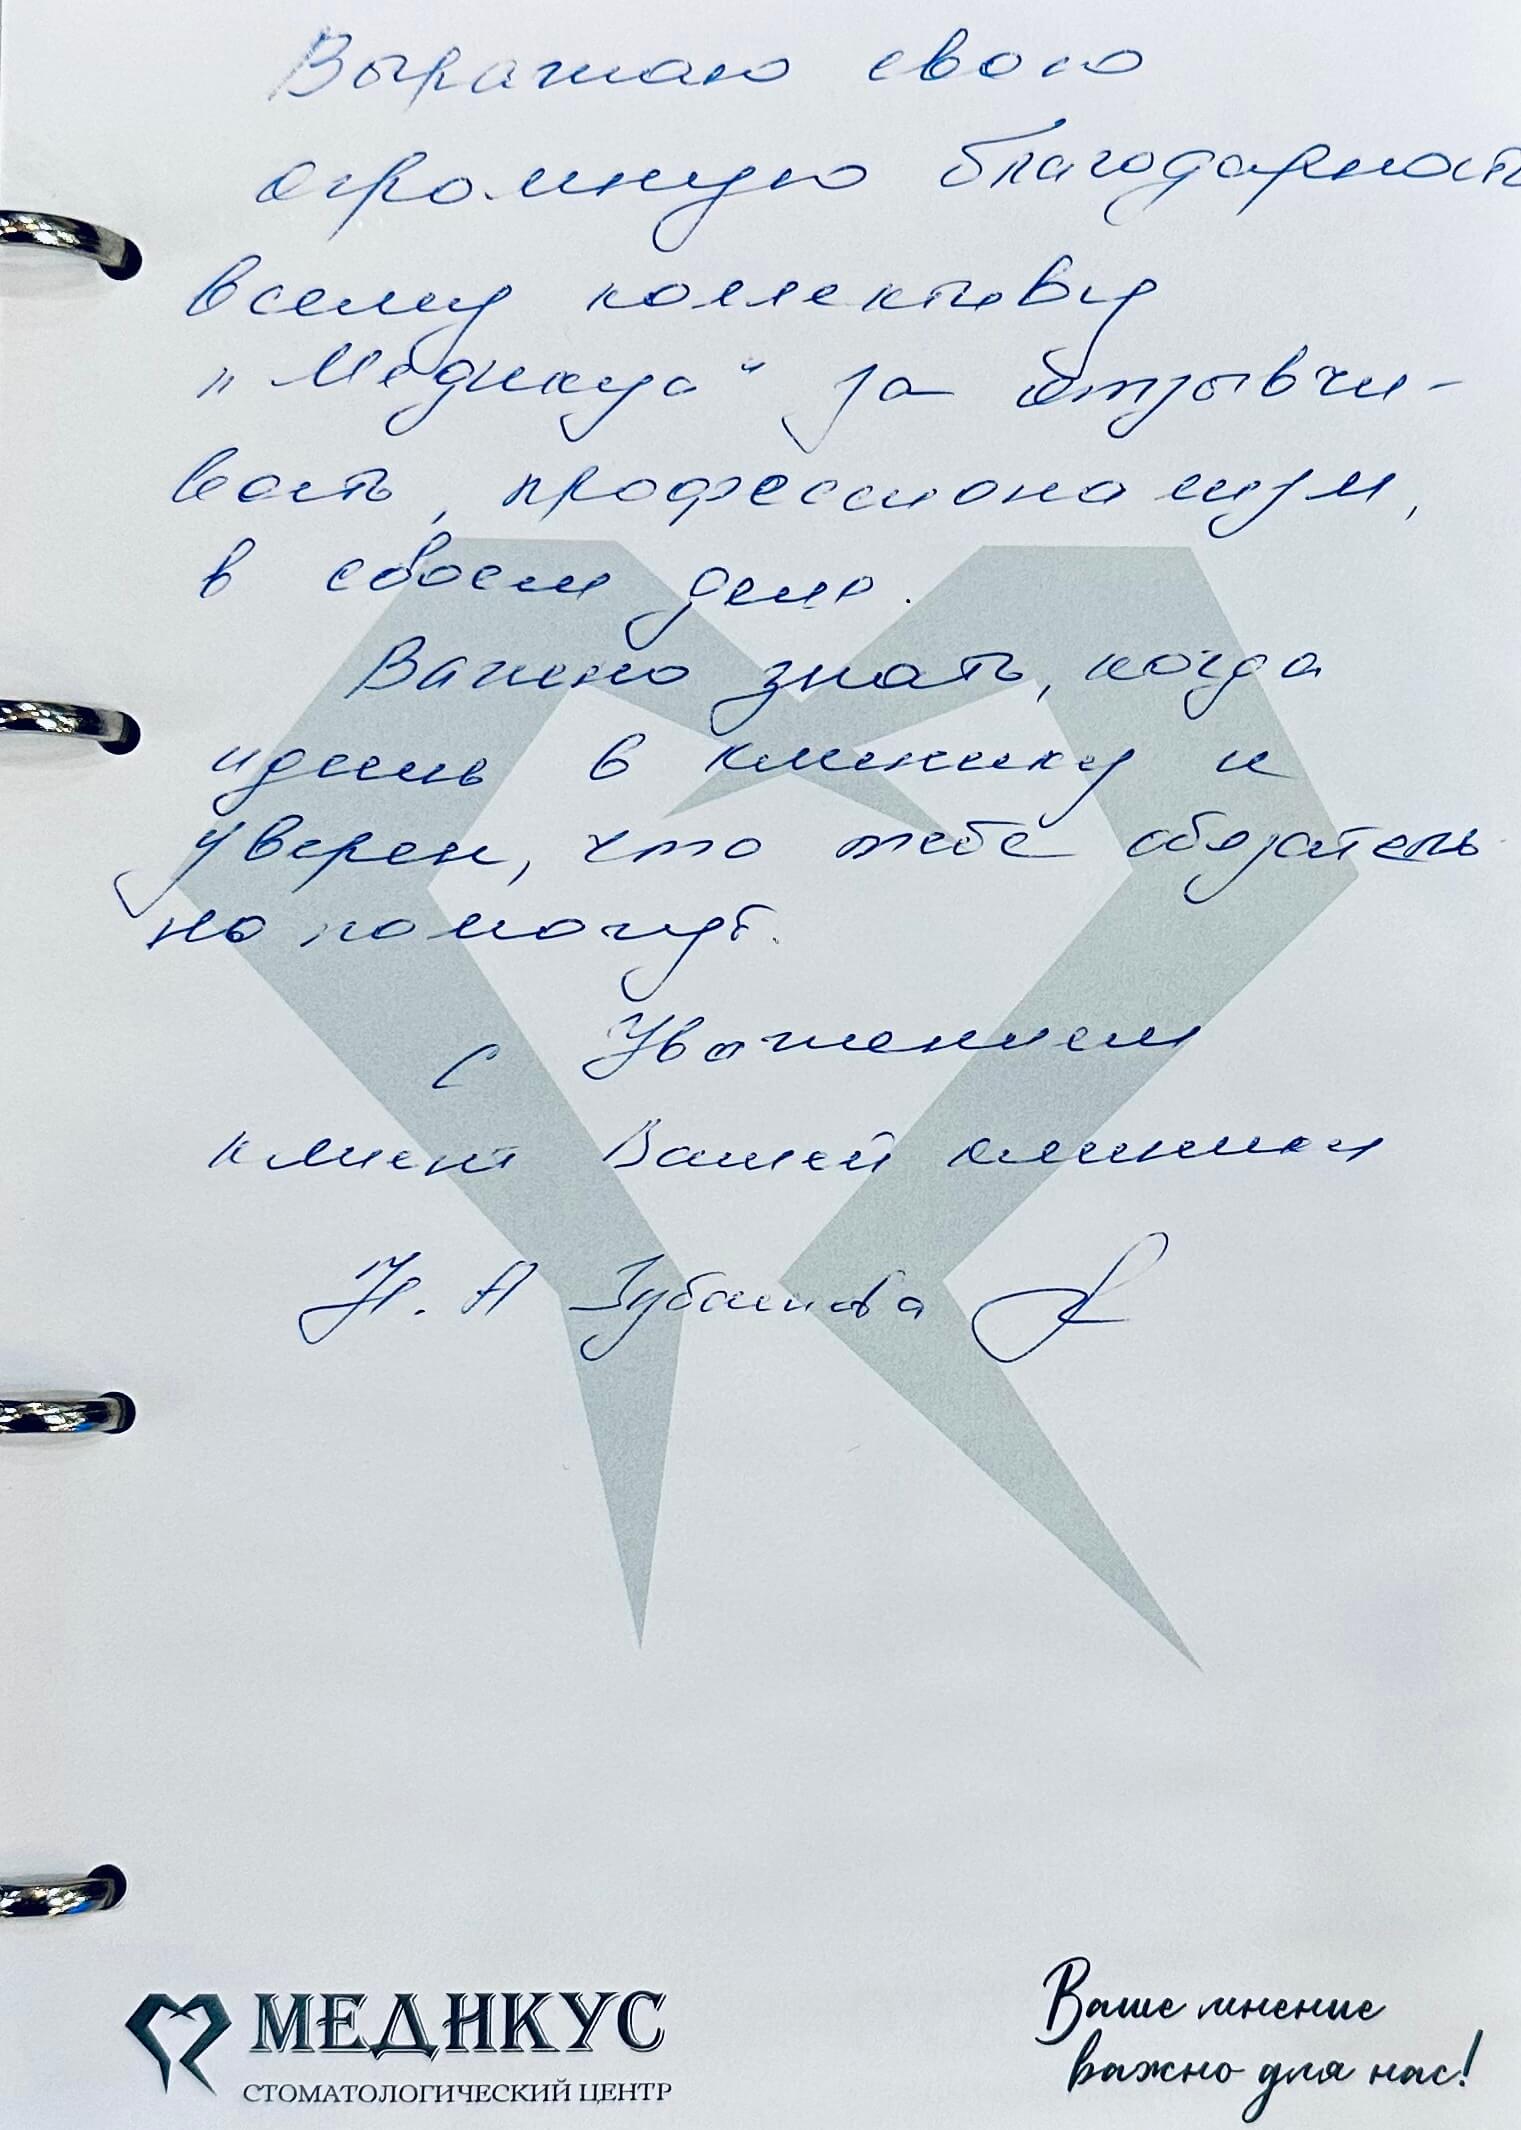 Выражаю свою
огромную благодарность
всему коллективу
"Медикус" за отзывчи-
вость, профессионализм,
в своем деле.
Важно знать, когда
идешь в клинику и
уверен, что тебе обязатель
но помогут.
С Уважением
клиент Вашей клиники
Н. А
МЕДИКУС
СТОМАТОЛОГИЧЕСКИЙ ЦЕНТР
Ваше мнение
важно для нас!